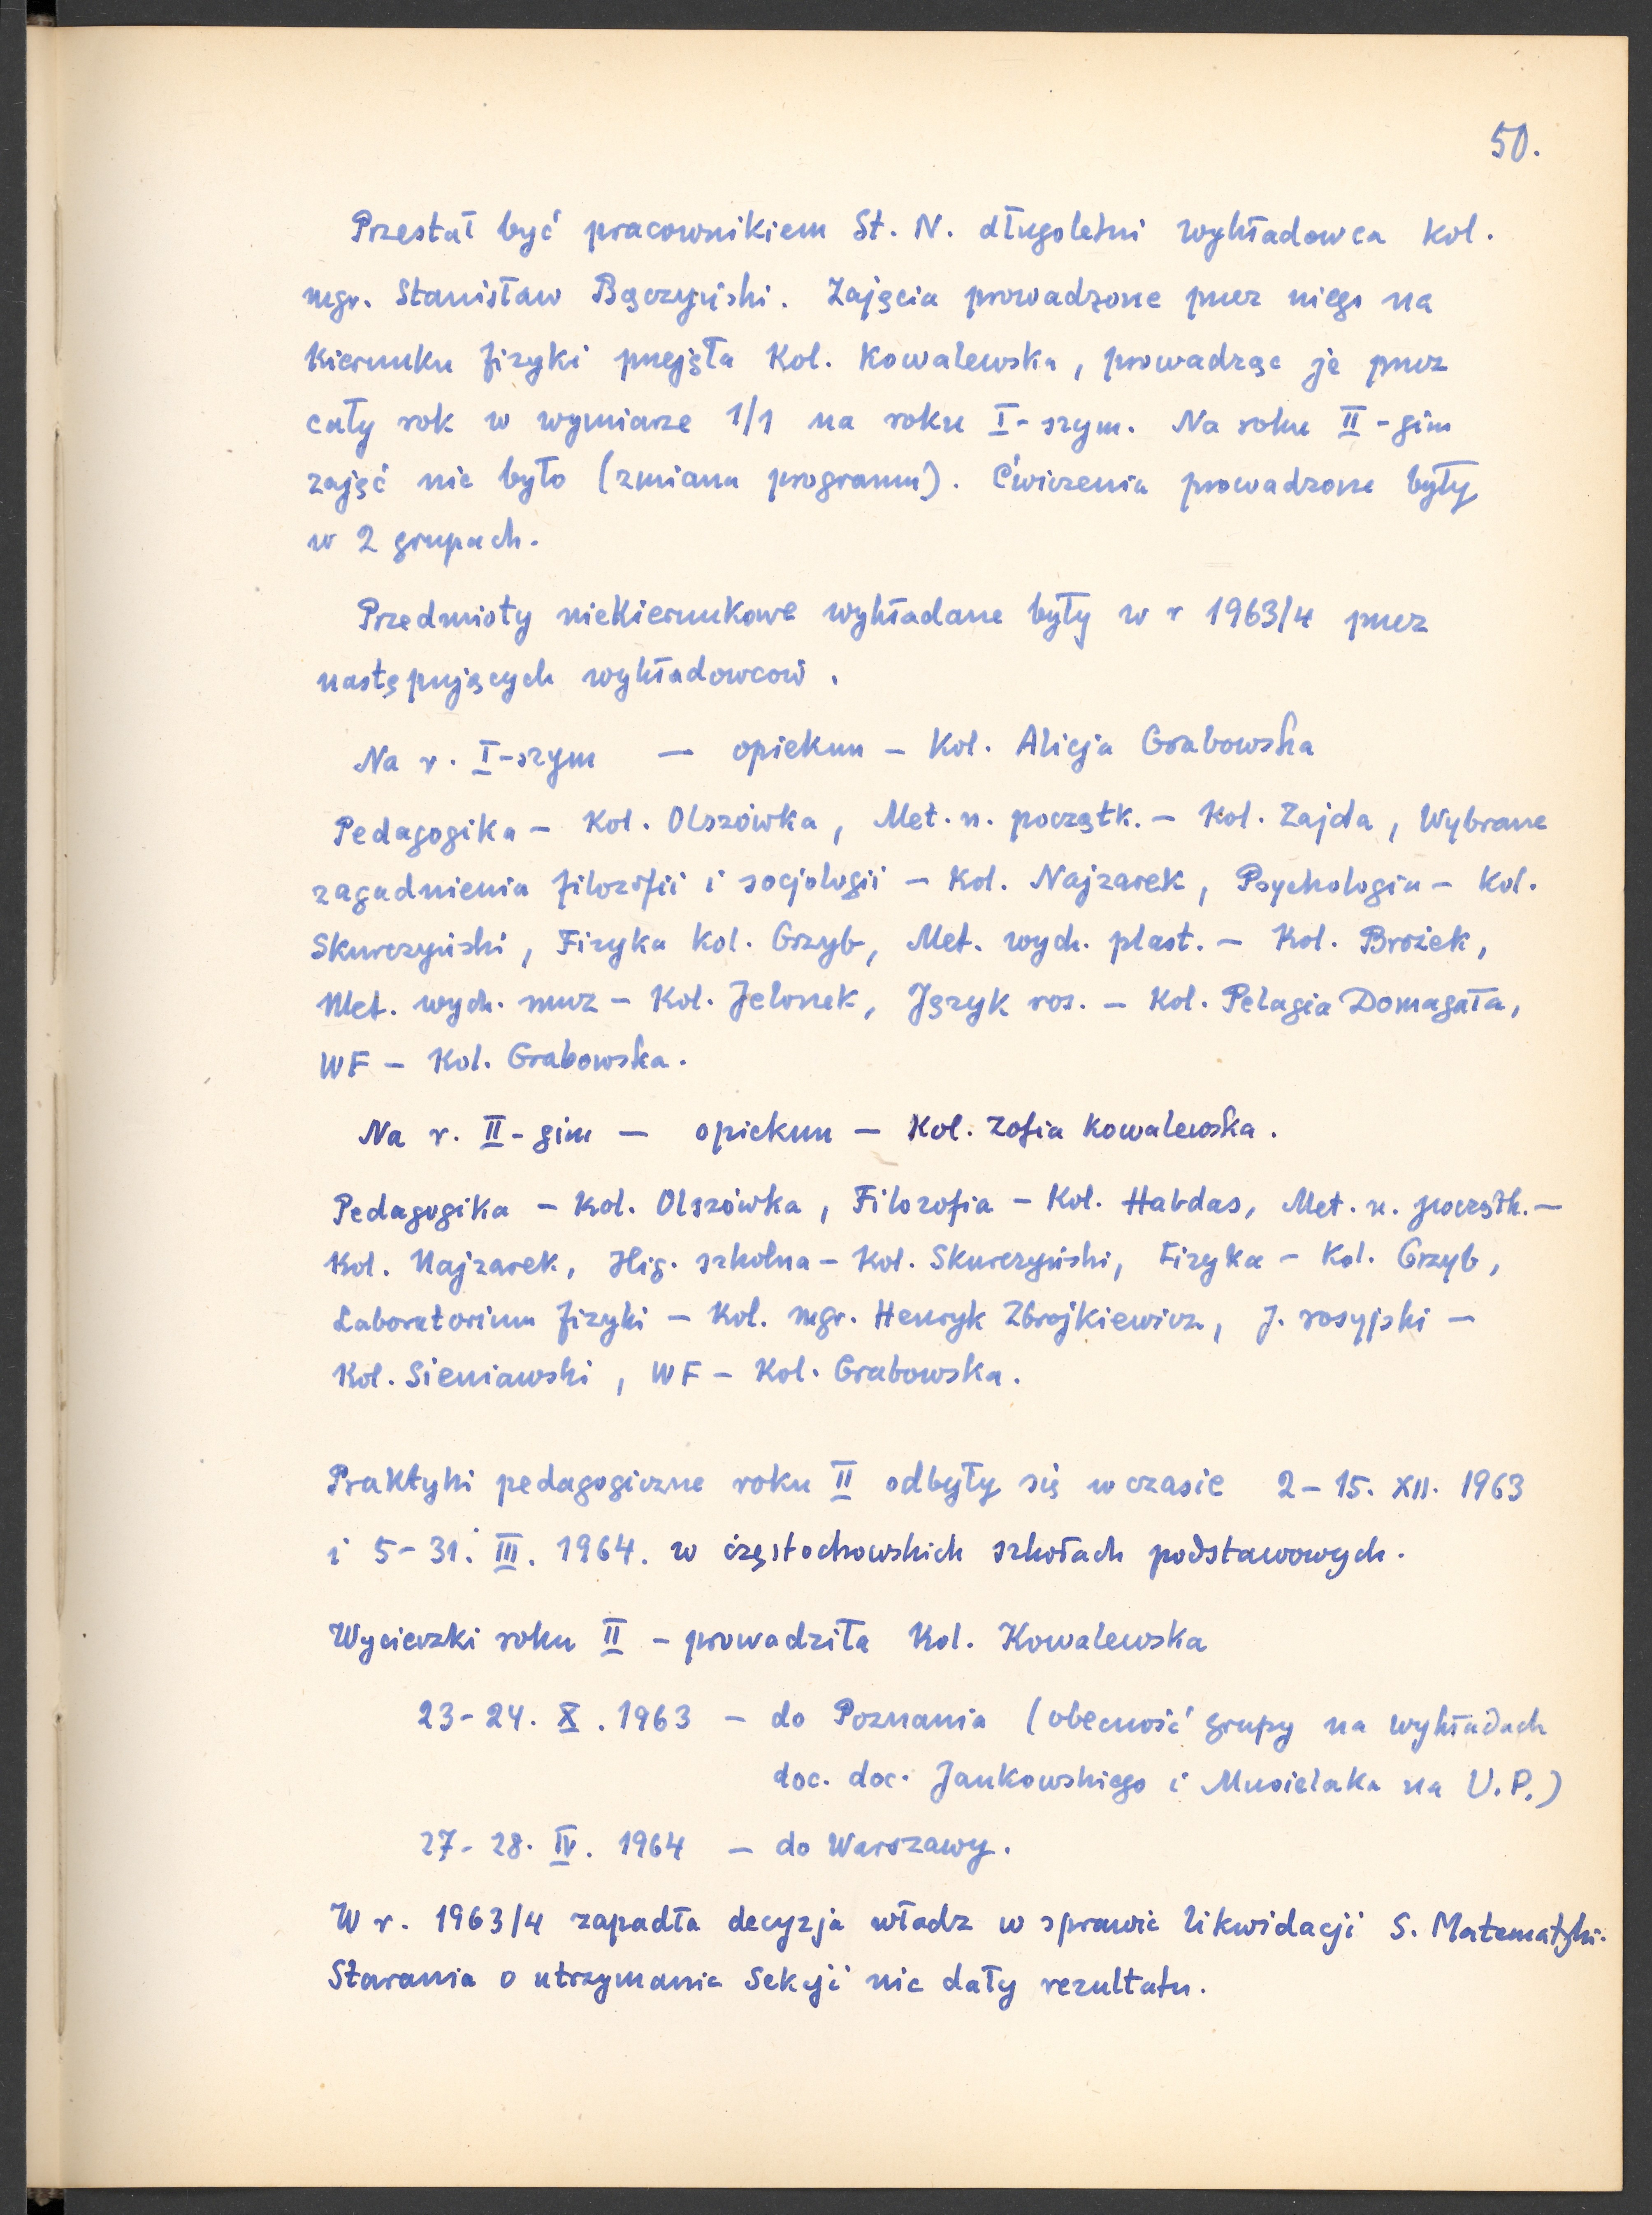 50.
Przestał być pracownikiem St. N. długoletni wykładowca Kol.
mgr. Stanisław Bączyński. Zajęcia prowadzone przez niego na
Kierunku fizyki przejęła Kol. Kowalewska, prowadząc je przez
cały rok w wymiarze 1/1 na roku I-szym. Na roku II-gim
zajęć nie było (zmiana programu). Ćwiczenia prowadzone były
w 2 grupach.
Przedmioty niekierunkowe wykładane były w r 1963/4 przez
następujących wykładowców.
Na r. I-szym — opiekun — Kol. Alicja Grabowska
Pedagogika — Kol. Olszówka, Met. n. początk. — Kol. Zajda, Wybrane
zagadnienia filozofii i socjologii — Kol. Najzarek, Psychologia — Kol.
Skurczyński, Fizyka Kol. Grzyb, Met. wych. plast. — Kol. Brożek,
Met. wych. muz — Kol. Jelonek, Język ros. — Kol. Pelagia Domagała,
WF — Kol. Grabowska.
Na r. II-gim — opiekun — Kol. Zofia Kowalewska.
Pedagogika — Kol. Olszówka, Filozofia — Kol. Habdas, Met. n. początk. —
Kol. Najzarek, Hig. szkolna — Kol. Skurczyński, Fizyka — Kol. Grzyb,
Laboratorium fizyki — Kol. mgr. Henryk Zbrojkiewicz, J. rosyjski —
Kol. Sieniawski, WF — Kol. Grabowska.
Praktyki pedagogiczne roku II odbyły się w czasie 2–15. XII. 1963
i 5–31. III. 1964. w częstochowskich szkołach podstawowych.
Wycieczki roku II — prowadziła Kol. Kowalewska
23–24. X. 1963 — do Poznania (obecność grupy na wykładach
doc. doc. Jankowskiego i Musielaka na U.P.)
27–28. IV. 1964 — do Warszawy.
W r. 1963/4 zapadła decyzja władz w sprawie likwidacji S. Matematyki.
Starania o utrzymanie Sekcji nie dały rezultatu.